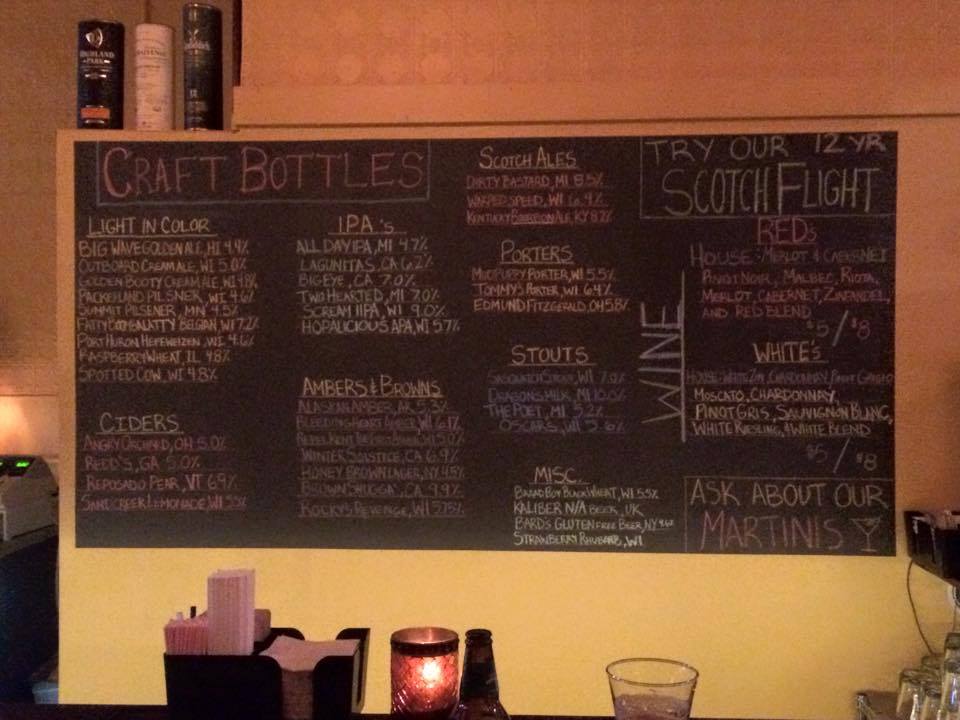 HIGHLAND PARK
12
CRAFT BOTTLES
LIGHT IN COLOR
BIG WAVE GOLDEN ALE, HI 4.4%
OUTBOARD CREAM ALE, WI 5.0%
GOLDEN BOOTY CREAM ALE, WI 4.8%
PACKERLAND PILSNER, WI 4.6%
SUMMIT PILSENER, MN 4.5%
FATTY BOOMBALATTY BELGIAN, WI 7.2%
PORT HURON HEFEWEIZEN, WI 4.6%
RASPBERRY WHEAT, IL 4.8%
SPOTTED COW, WI 4.8%
CIDERS
ANGRY ORCHARD, OH 5.0%
REDD'S, GA 5.0%
REPOSADO PEAR, VT 6.9%
SAND CREEK LEMONADE, WI 5.5%
IPA'S
ALL DAY IPA, MI 4.7%
LAGUNITAS, CA 6.2%
BIG EYE, CA 7.0%
TWO HEARTED, MI 7.0%
SCREAM IIPA, WI 9.0%
HOPALICIOUS APA, WI 5.7%
AMBERS & BROWNS
ALASKAN AMBER, AK 5.3%
BLEEDING HEART AMBER, WI 6.1%
REBEL KENT THE FIRST AMBER, WI 5.0%
WINTER SOLSTICE, CA 6.9%
HONEY BROWN LAGER, NY 4.5%
BROWN SHUGGA', CA 9.9%
ROCKY'S REVENGE, WI 5.75%
SCOTCH ALES
DIRTY BASTARD, MI 8.5%
WARPED SPEED, WI 6.9%
KENTUCKY BOURBON ALE, KY 8.2%
PORTERS
MUDPUPPY PORTER, WI 5.5%
TOMMY'S PORTER, WI 6.4%
EDMUND FITZGERALD, OH 5.8%
STOUTS
SASQUATCH STOUT, WI 7.0%
DRAGONS MILK, MI 10.0%
THE POET, MI 5.2%
OSCARS, WI 5.6%
MISC.
BREAD BOY BLACK WHEAT, WI 5.5%
KALIBER N/A BEER, UK
BARD'S GLUTEN FREE BEER, NY 4.6%
STRAWBERRY RHUBARB, WI
TRY OUR 12 YR
SCOTCH FLIGHT
WINE
REDS
HOUSE: MERLOT & CABERNET
PINOT NOIR, MALBEC, RIOJA,
MERLOT, CABERNET, ZINFANDEL,
AND RED BLEND
$5/$8
WHITE'S
HOUSE: WHITE ZIN, CHARDONNAY, PINOT GRIGIO
MOSCATO, CHARDONNAY,
PINOT GRIS, SAUVIGNON BLANC,
WHITE RIESLING, & WHITE BLEND
$5/$8
ASK ABOUT OUR
MARTINIS